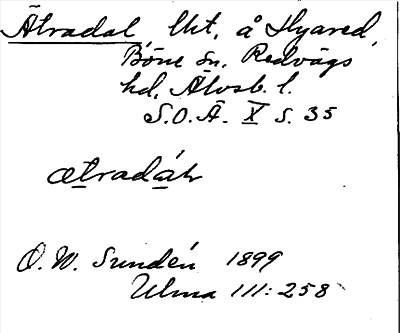 Ätradal, lht, å Hyared,
Böne sn. Redvägs
hd, Älvsb. l.
S.O.Ä. X s. 35
ætradáh
O. W. Sundén 1899
Ulma 111:258